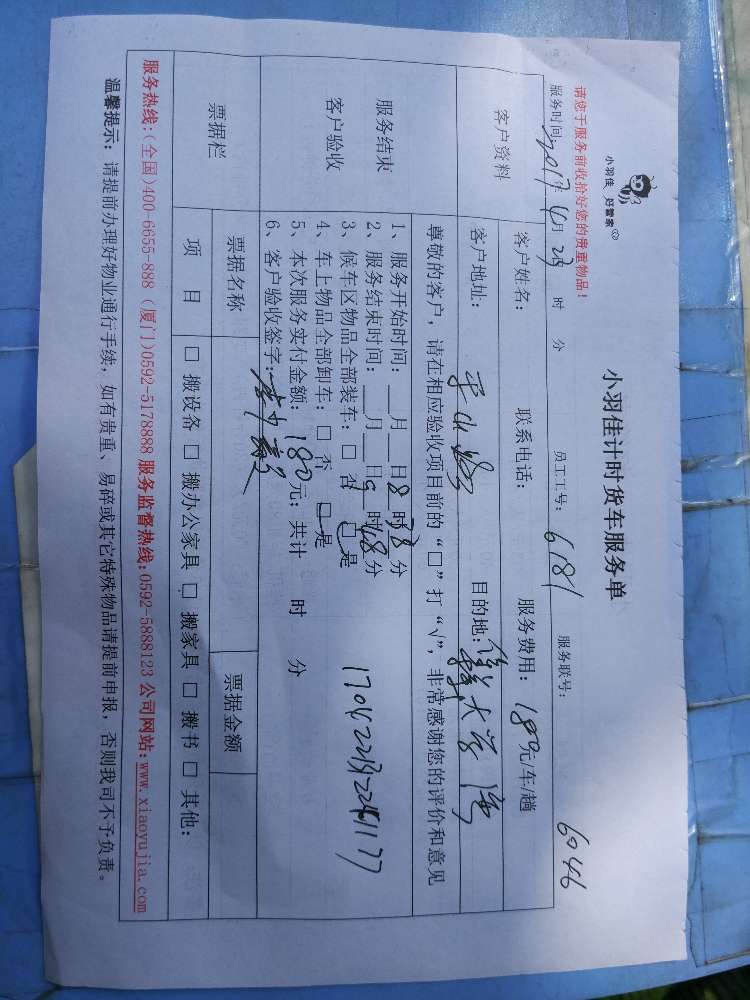 小羽佳 好管家
小羽佳计时货车服务单
请您于服务前收拾好您的贵重物品！
服务时间：2017年4月23 时 分 员工工号：6181 服务联号： 6046
客户资料 客户姓名： 联系电话： 服务费用：180元/车/趟
客户地址： 目的地：
尊敬的客户，请在相应验收项目前的“□”打“√”，非常感谢您的评价和意见
服务结束
客户验收
1、服务开始时间：___月___日8时38分
2、服务结束时间：___月___日9时48分
3、候车区物品全部装车：□ 否 □是
4、车上物品全部卸车：□ 否 □是
5、本次服务实付金额：180元；共计 时 分
6、客户验收签字：
票据栏 票据名称 票据金额
项 目 □ 搬设备 □ 搬办公家具 □ 搬家具 □ 搬书 □ 其他：
服务热线：(全国)400-6655-888 (厦门)0592-5178888 服务监督热线：0592-5888123 公司网站：www.xiaoyujia.com
温馨提示：请提前办理好物业通行手续，如有贵重、易碎或其它特殊物品请提前申报，否则我司不予负责。